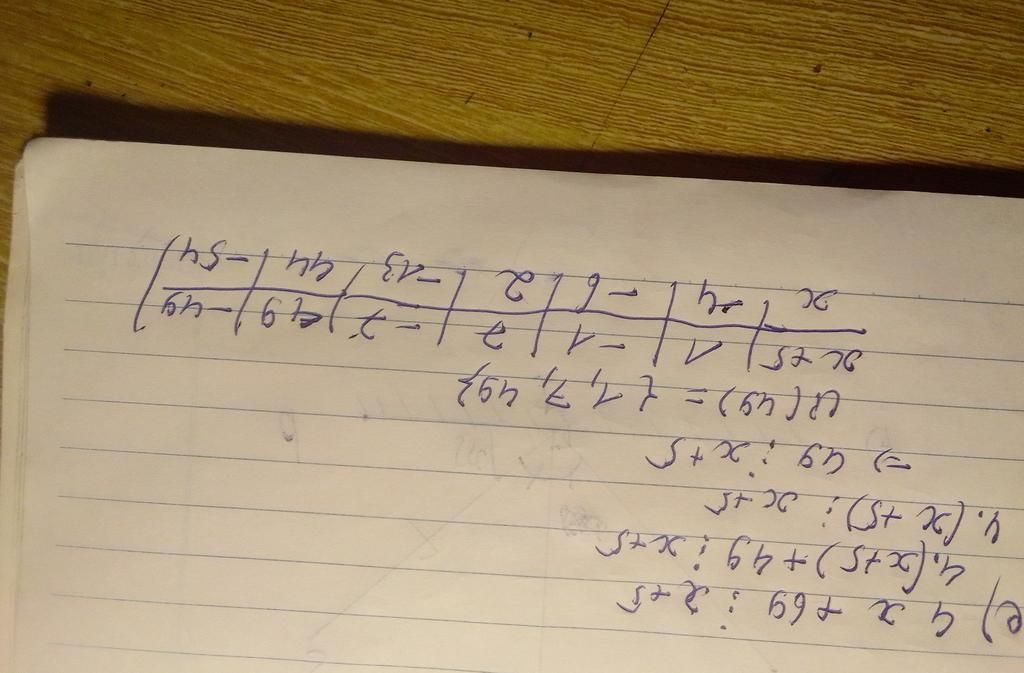 e) 4x + 69 ⋮ x+5
4.(x+5) + 49 ⋮ x+5
4.(x+5) ⋮ x+5
=) 49 ⋮ x+5
Ư(49) = {1, 7, 49}
x+5 | 1 | -1 | 7 | -7 | 49 | -49 |
x | -4 | -6 | 2 | -13 | 44 | -54 |